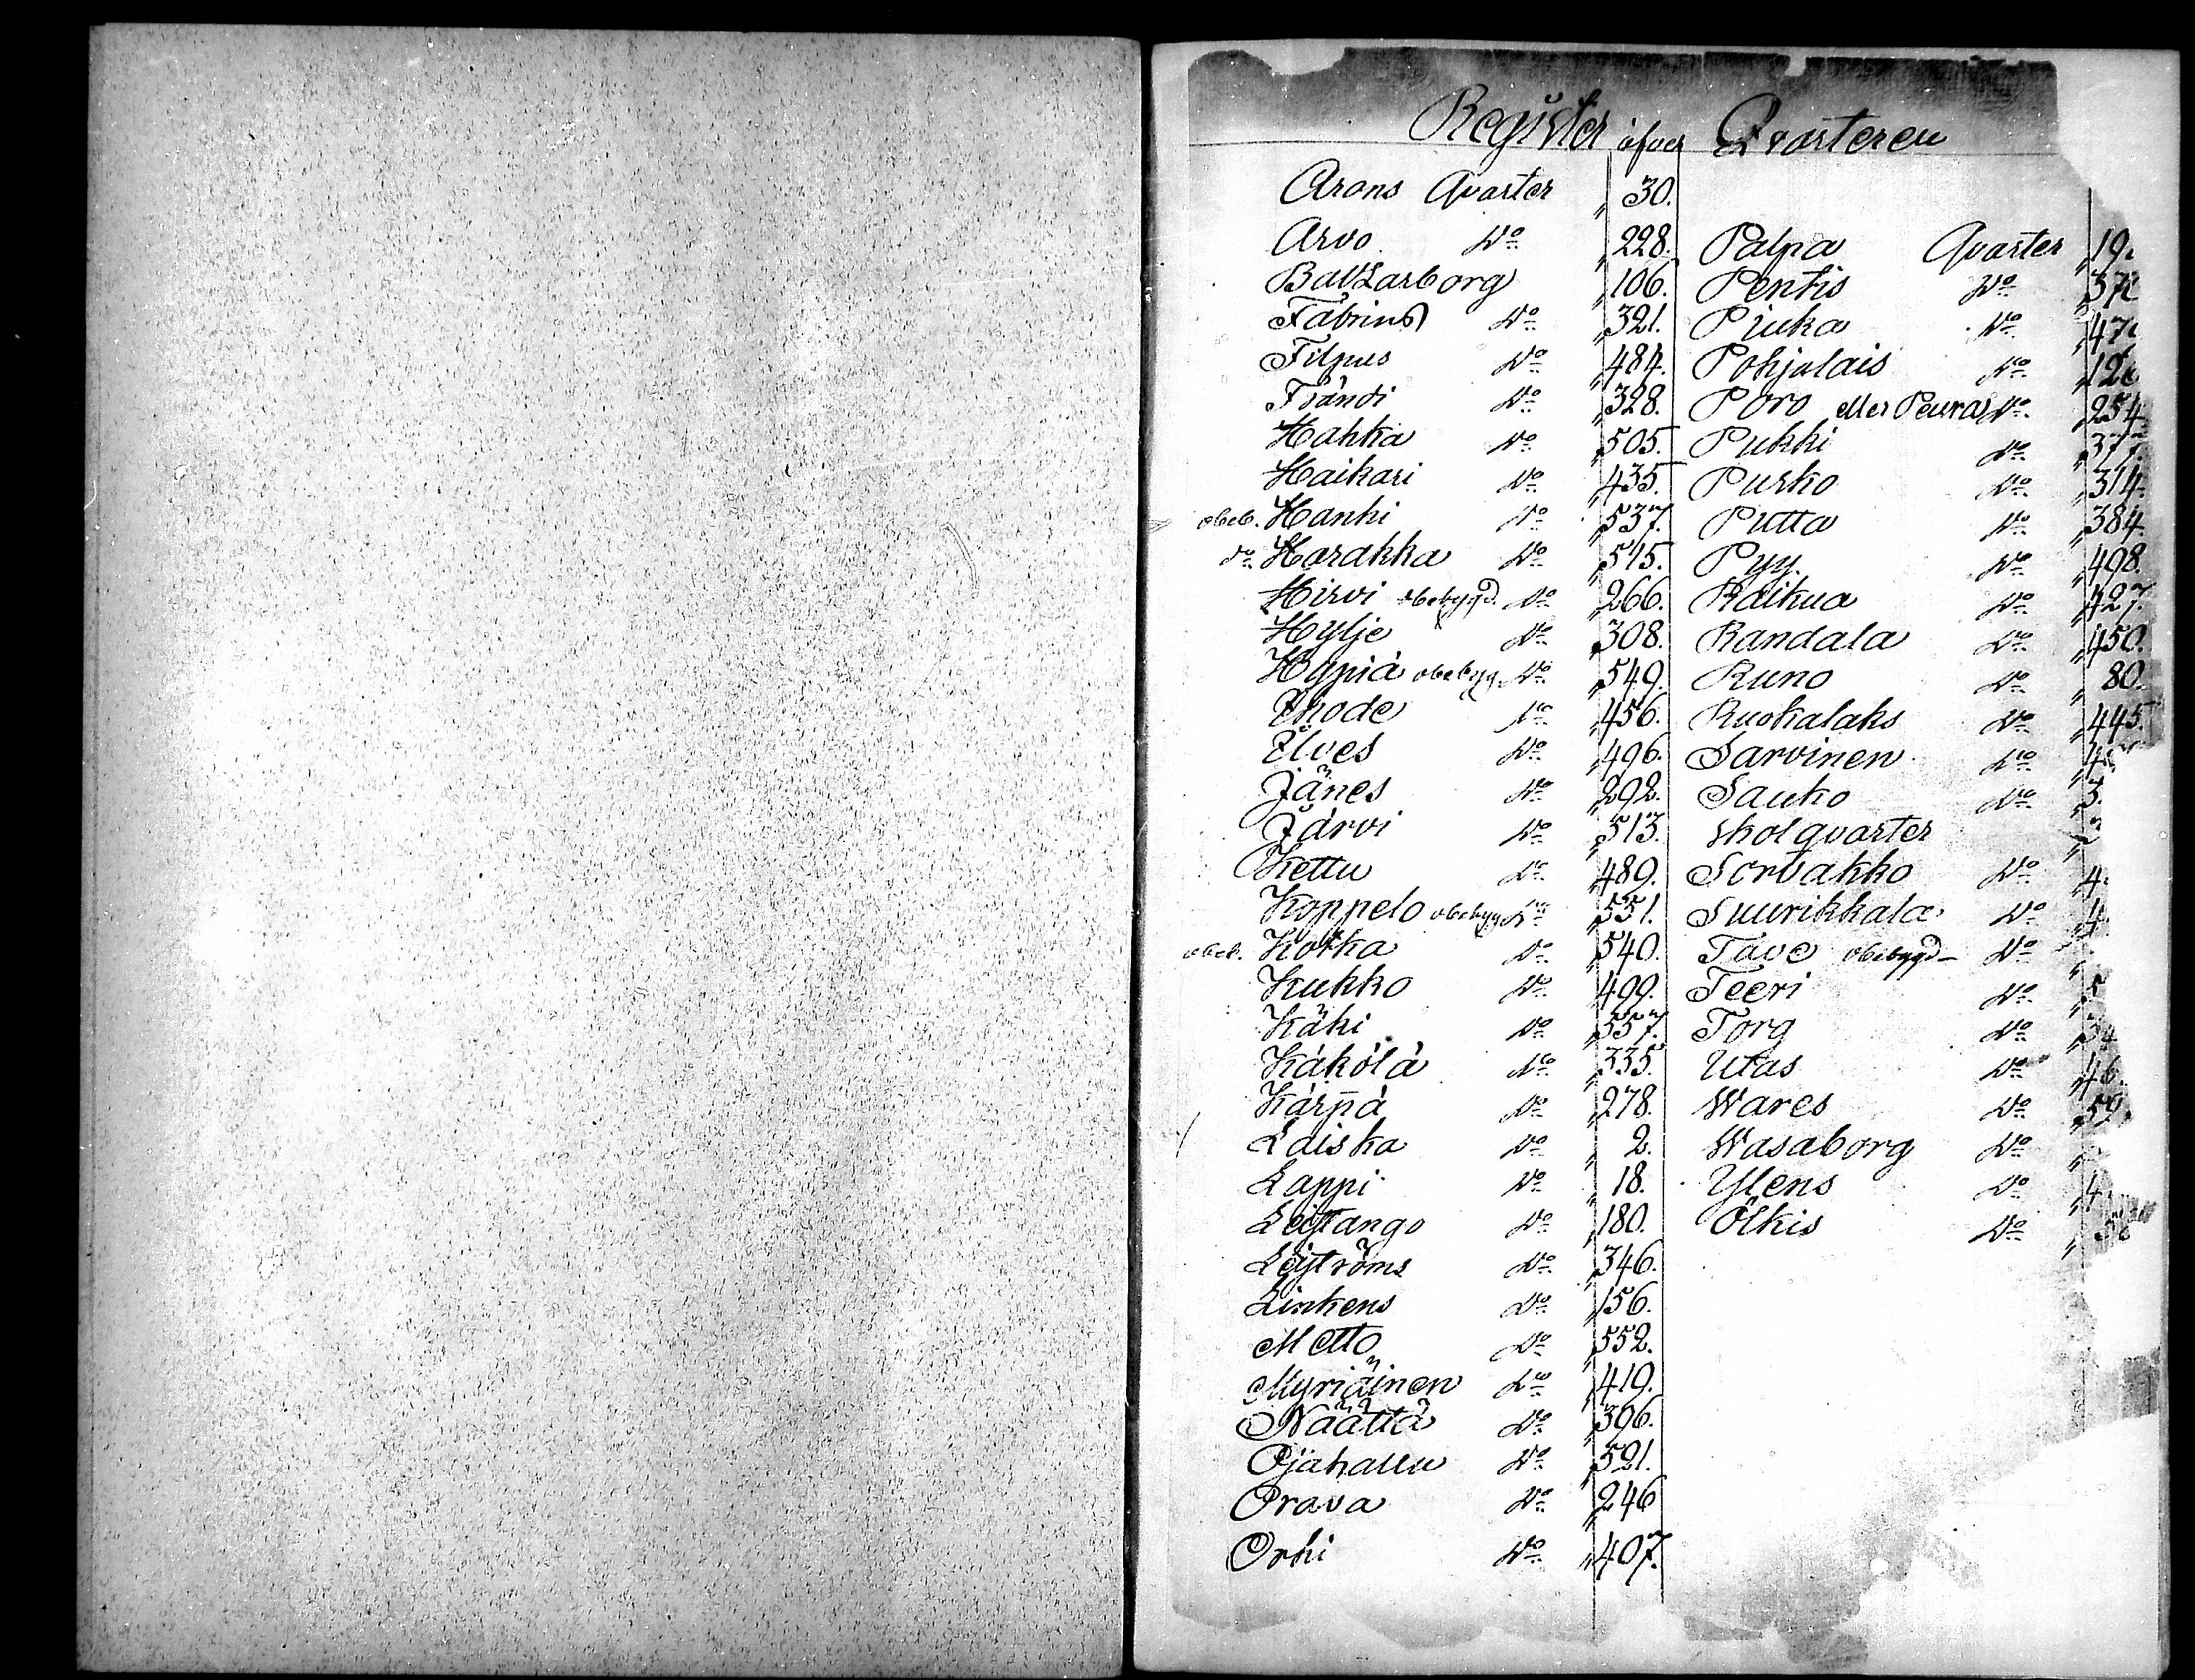 Register öfver Qvarteren
Arons Qvarter „ 30.
Arvo Do „ 228.
Baltzarborg „ 106.
Fabrins Do „ 321.
Filpus Do „ 484.
Frändi Do „ 328.
Hahka Do „ 505.
Haikari Do „ 435.
obeb. Hanhi Do „ 537.
do Harakka Do „ 515.
Hirvi obebygd. Do „ 266.
Hylje Do „ 308.
Hypiä obebyg. Do „ 549.
Ihode Do „ 456.
Ilves Do „ 496.
Jänes Do „ 292.
Järvi Do „ 513.
Kettu Do „ 489.
Koppelo obebyg. Do „ 551.
obeb. Kotka Do „ 540.
Kukko Do „ 499.
Käki Do „ 557.
Käkölä Do „ 335.
Kärpä Do „ 278.
Laiska Do „ 2.
Lappi Do „ 18.
Leistango Do „ 180.
Leiströms Do „ 346.
Linkens Do „ 156.
Metto Do „ 552.
Myriäinen Do „ 419.
Näättä Do „ 396.
Ojahaun Do „ 521.
Orava Do „ 246
Orhi Do „ 407.
Palpa Qvarter „ 19.
Pentis Do „ 37
Piuka Do „ 47
Pohjalais Do „ 12
Poro eller Peura Do „ 254
Pukki Do „ 377.
Purko Do „ 314.
Putta Do „ 384.
Pyy. Do „ 498.
Raikua Do „ 427.
Randala Do „ 450.
Runo Do „ 80.
Ruokalaks Do „ 445.
Sarvinen Do „ 4
Sauko Do „ 3.
Skolqvarter „
Sorvakko Do „ 4.
Suurikkala Do „ 4.
Tave obebygd Do „
Teeri Do „ 5
Torg Do „ 34
Utas Do „ 46.
Wares Do „ 59.
Wasaborg Do „
Ylens Do „ 4
Ölkis Do „